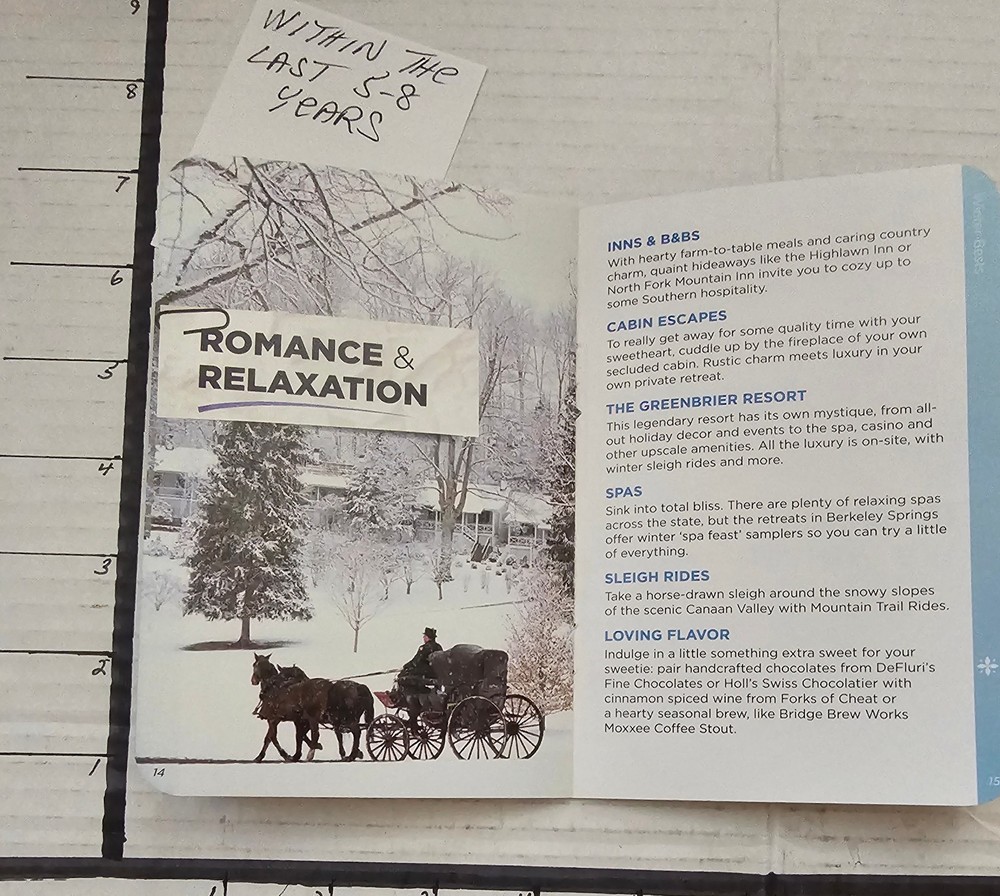 9
8
7
6
5
4
3
2
1
WITHIN THE
LAST 5-8
YEARS
ROMANCE &
RELAXATION
14
INNS & B&BS
With hearty farm-to-table meals and caring country
charm, quaint hideaways like the Highlawn Inn or
North Fork Mountain Inn invite you to cozy up to
some Southern hospitality.
CABIN ESCAPES
To really get away for some quality time with your
sweetheart, cuddle up by the fireplace of your own
secluded cabin. Rustic charm meets luxury in your
own private retreat.
THE GREENBRIER RESORT
This legendary resort has its own mystique, from all-
out holiday decor and events to the spa, casino and
other upscale amenities. All the luxury is on-site, with
winter sleigh rides and more.
SPAS
Sink into total bliss. There are plenty of relaxing spas
across the state, but the retreats in Berkeley Springs
offer winter ‘spa feast’ samplers so you can try a little
of everything.
SLEIGH RIDES
Take a horse-drawn sleigh around the snowy slopes
of the scenic Canaan Valley with Mountain Trail Rides.
LOVING FLAVOR
Indulge in a little something extra sweet for your
sweetie: pair handcrafted chocolates from DeFluri’s
Fine Chocolates or Holl’s Swiss Chocolatier with
cinnamon spiced wine from Forks of Cheat or
a hearty seasonal brew, like Bridge Brew Works
Moxxee Coffee Stout.
15